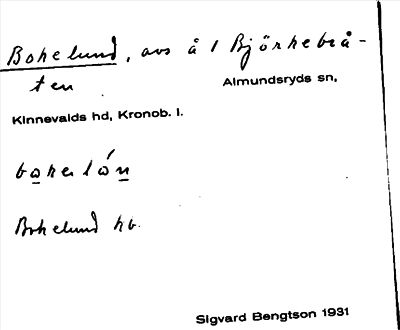 Bokelund, avs å 1 Björkebrå-
ten
Almundsryds sn,
Kinnevalds hd, Kronob. l.
Bokelund hb.
Sigvard Bengtson 1931